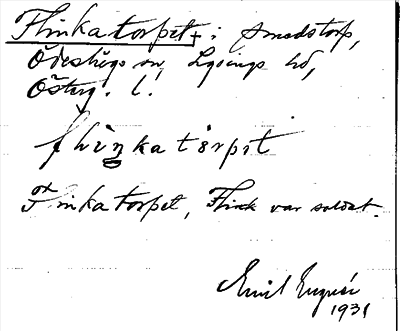 Flinkatorpet i Smedstorp,
Ödeshögs sn, Lysings hd,
Österg. l.
flìŋkatårpət
Flinkatorpet, Flink var soldat.
Emil
1931